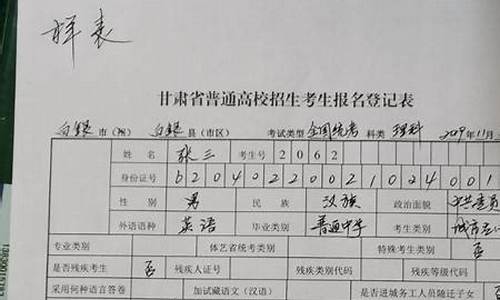 样表
甘肃省普通高校招生考生报名登记表
白银 市(州) 白银 县(市区) 考试类型 全国统考 科类 理科 2019年11月
姓名 张三 考生号 2062
身份证号 62040220021024001
性别 男 民族 汉族 政治面貌 共青团员
外语语种 英语 毕业类别 普通中学 考生类别 城市应
专业类别 体艺省统考类别 特殊考生类别 否
是否残疾考生 否 残疾人证号 残疾类别代码 残疾等级代码
采用何种语言答卷 加试藏语文(汉语) 是否进城务工人员随迁子女